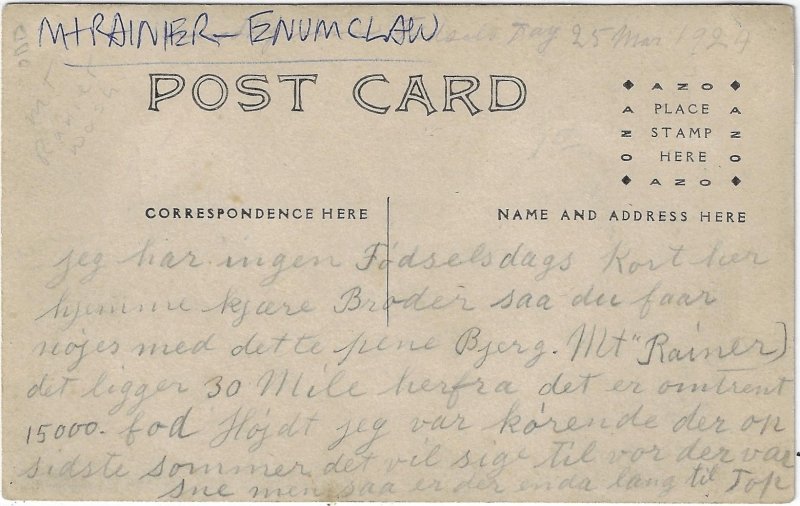 MtRAINIER - ENUMCLAW
Dag 25 Mar 1924
Mt
Rainier
Wash
POST CARD
AZO
PLACE
STAMP
HERE
AZO
AZO
AZO
CORRESPONDENCE HERE
NAME AND ADDRESS HERE
jeg har ingen Födselsdags Kort her
hjemme kjære Broder saa du faar
nöjes med dette pene Bjerg. Mt "Rainer)
det ligger 30 Mile herfra det er omtrent
15000- fod Højdt jeg var körende der op
sidste sommer det vil sige til vor der var
sne men saa er der enda lang til Top